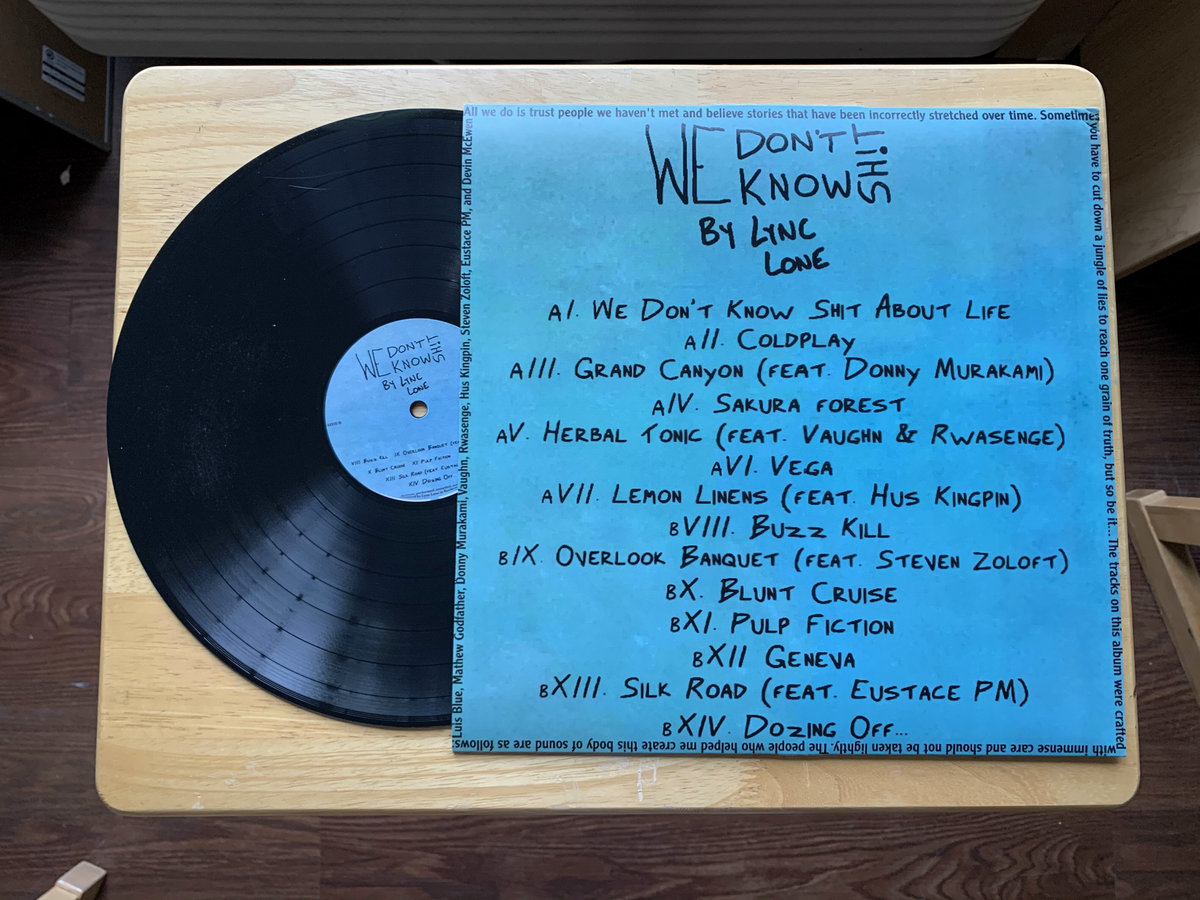 All we do is trust people we haven't met and believe stories that have been incorrectly stretched over time. Sometimes
you have to cut down a jungle of lies to reach one grain of truth, but so be it... The tracks on this album were crafted
with immense care and should not be taken lightly. The people who helped me create this body of sound are as follows:
Luis Blue, Mathew Godfather, Donny Murakami, Vaughn, Rwasenge, Hus Kingpin, Steven Zoloft, Eustace PM, and Devin McEwen
WE DON'T KNOW SHIT.
BY LYNC
LONE
AI. WE DON'T KNOW SHIT ABOUT LIFE
AII. COLDPLAY
AIII. GRAND CANYON (FEAT. DONNY MURAKAMI)
AIV. SAKURA FOREST
AV. HERBAL TONIC (FEAT. VAUGHN & RWASENGE)
AVI. VEGA
AVII. LEMON LINENS (FEAT. HUS KINGPIN)
BVIII. BUZZ KILL
BIX. OVERLOOK BANQUET (FEAT. STEVEN ZOLOFT)
BX. BLUNT CRUISE
BXI. PULP FICTION
BXII GENEVA
BXIII. SILK ROAD (FEAT. EUSTACE PM)
BXIV. DOZING OFF...
WE DON'T KNOW SHIT.
BY LYNC
LONE
VIII BUZZ KILL IX OVERLOOK BANQUET
X BLUNT CRUISE XI PULP FICTION
XIII SILK ROAD (FEAT. EUSTA
XIV DOZING OFF